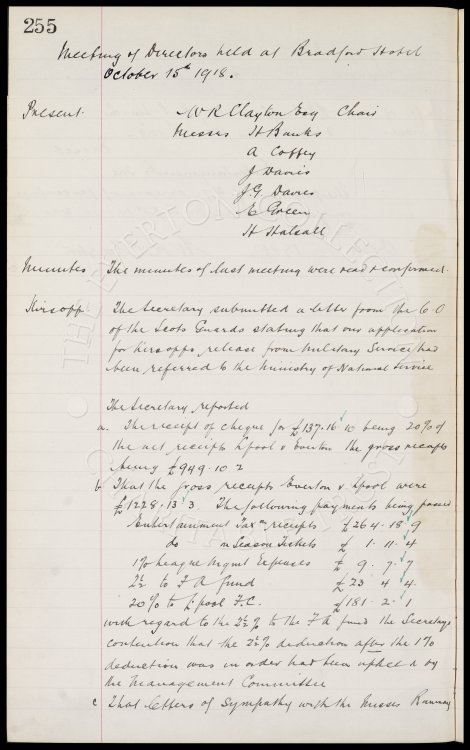 255
Meeting of Directors held at Bradford Hotel
October 15th 1918.
Present. W R Clayton Esq Chair
Messrs H Banks
A Coffey
J Davies
J.G. Davies
E Green
H Halsall
Minutes The minutes of last meeting were read & confirmed.
Kirsopp The Secretary submitted a letter from the C.O
of the Scots Guards stating that our application
for Kirsopps release from Military Service had
been referred to the Ministry of National Service
The Secretary reported
a. The receipt of cheque for £137.16.10 being 20% of
the net receipts L'pool v Everton the gross receipts
being £949.10.2
b That the gross receipts Everton v L'pool were
£1228.13.3. The following payments being passed
Entertainment Tax on receipts £264.18.9
do on Season Tickets £1.11.4
1% League Mgmt Expenses £9.7.7
2½ to F A fund £23.4.4
20% to L'pool F.C. £181.2.1
with regard to the 2½% to the F A fund the Secretarys
contention that the 2½% deduction after the 1%
deduction was in order had been upheld by
the Management Committee
c That letters of Sympathy with the Misses
THE EVERTON COLLECTION